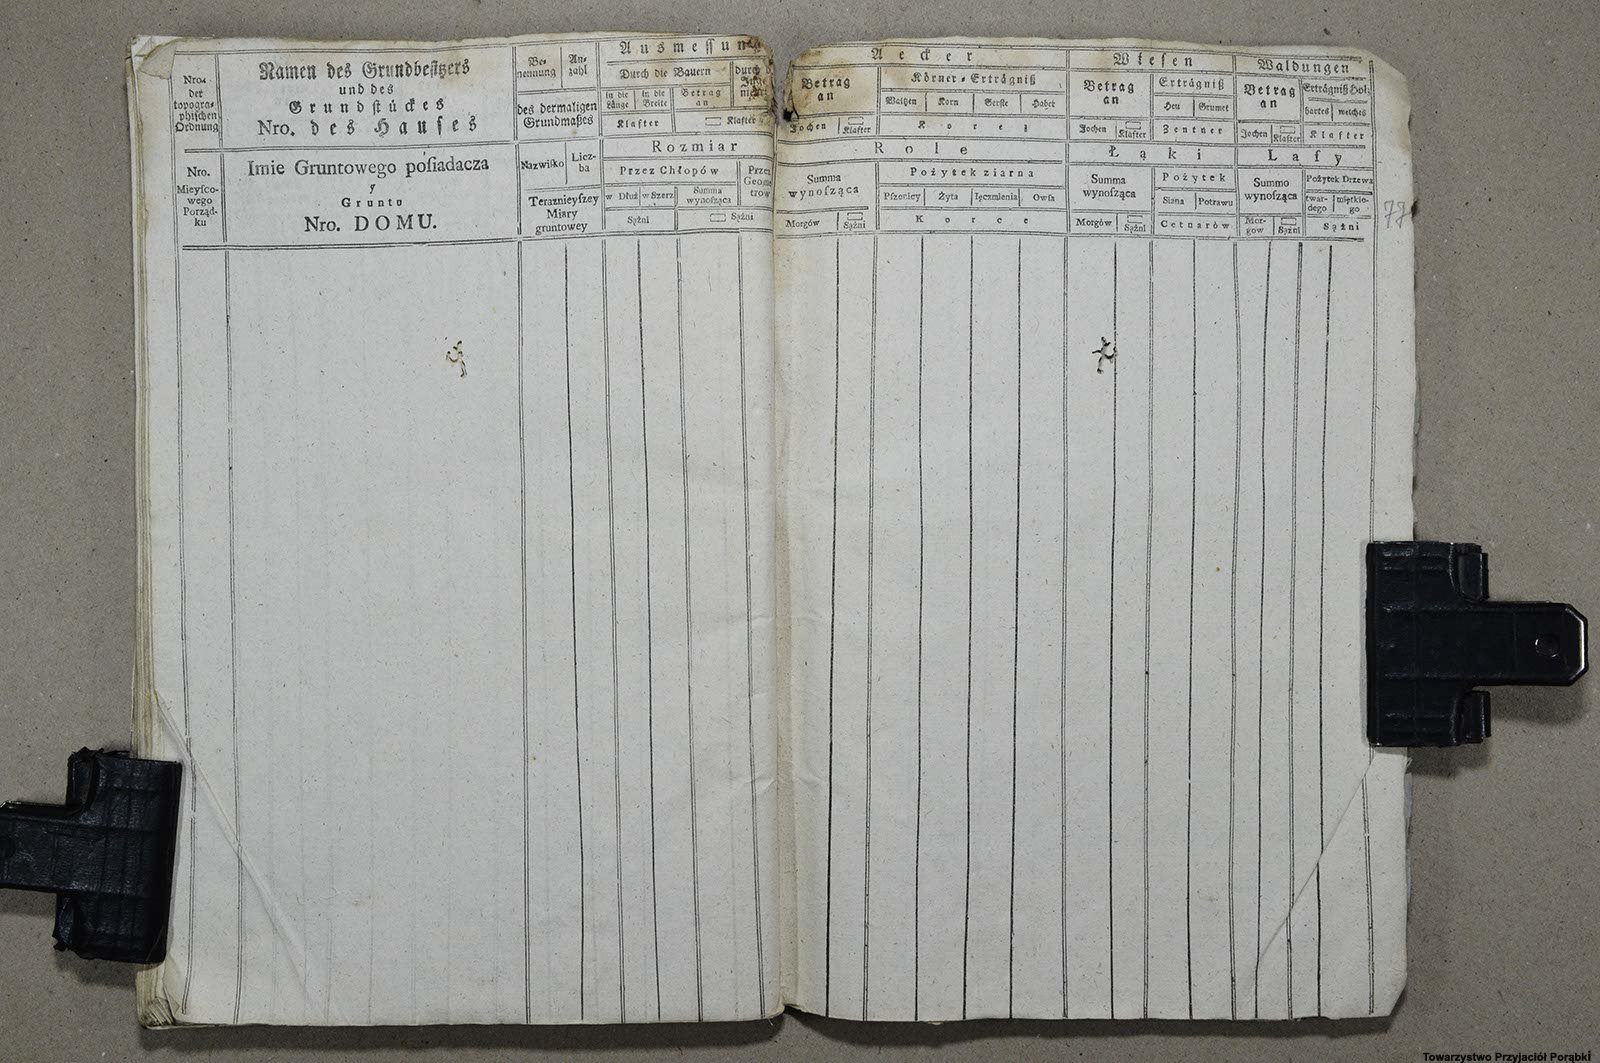 Nro.
der
topogra-
phischen
Ordnung
Namen des Grundbesitzers
und des
Grundstückes
Nro. des Hauses
Be-
nennung
An-
zahl
des dermaligen
Grundmaßes
Ausmessung
Durch die Bauern
in die
Länge
in die
Breite
Betrag
an
Klafter
Klafter
Nro.
Mieysco-
wego
Porząd-
ku
Imie Gruntowego posiadacza
y
Grunto
Nro. DOMU.
Nazwisko
Licz-
ba
Teraznieyszey
Miary
gruntowey
Rozmiar
Przez Chłopów
Przez
Geome
trow
w Dłuż
w Szerz
Summa
wynosząca
Sążni
Sążni
Aecker
Betrag
an
Körner-Erträgniß
Waitzen
Korn
Gerste
Haber
Jochen
Klafter
Korez
Role
Summa
wynosząca
Pożytek ziarna
Pszenicy
Żyta
Ięczmienia
Owsa
Morgów
Sążni
Korce
Wiesen
Betrag
an
Erträgniß
Heu
Grumet
Jochen
Klafter
Zentner
Łąki
Summa
wynosząca
Pożytek
Siana
Potrawu
Morgów
Sążni
Cetnarów
Waldungen
Betrag
an
Erträgniß Holz
hartes
weiches
Jochen
Klafter
Klafter
Lasy
Summo
wynosząca
Pożytek Drzewa
twar-
dego
miętkie-
go
Mor-
gow
Sążni
Sążni
77
Towarzystwo Przyjaciół Porąbki